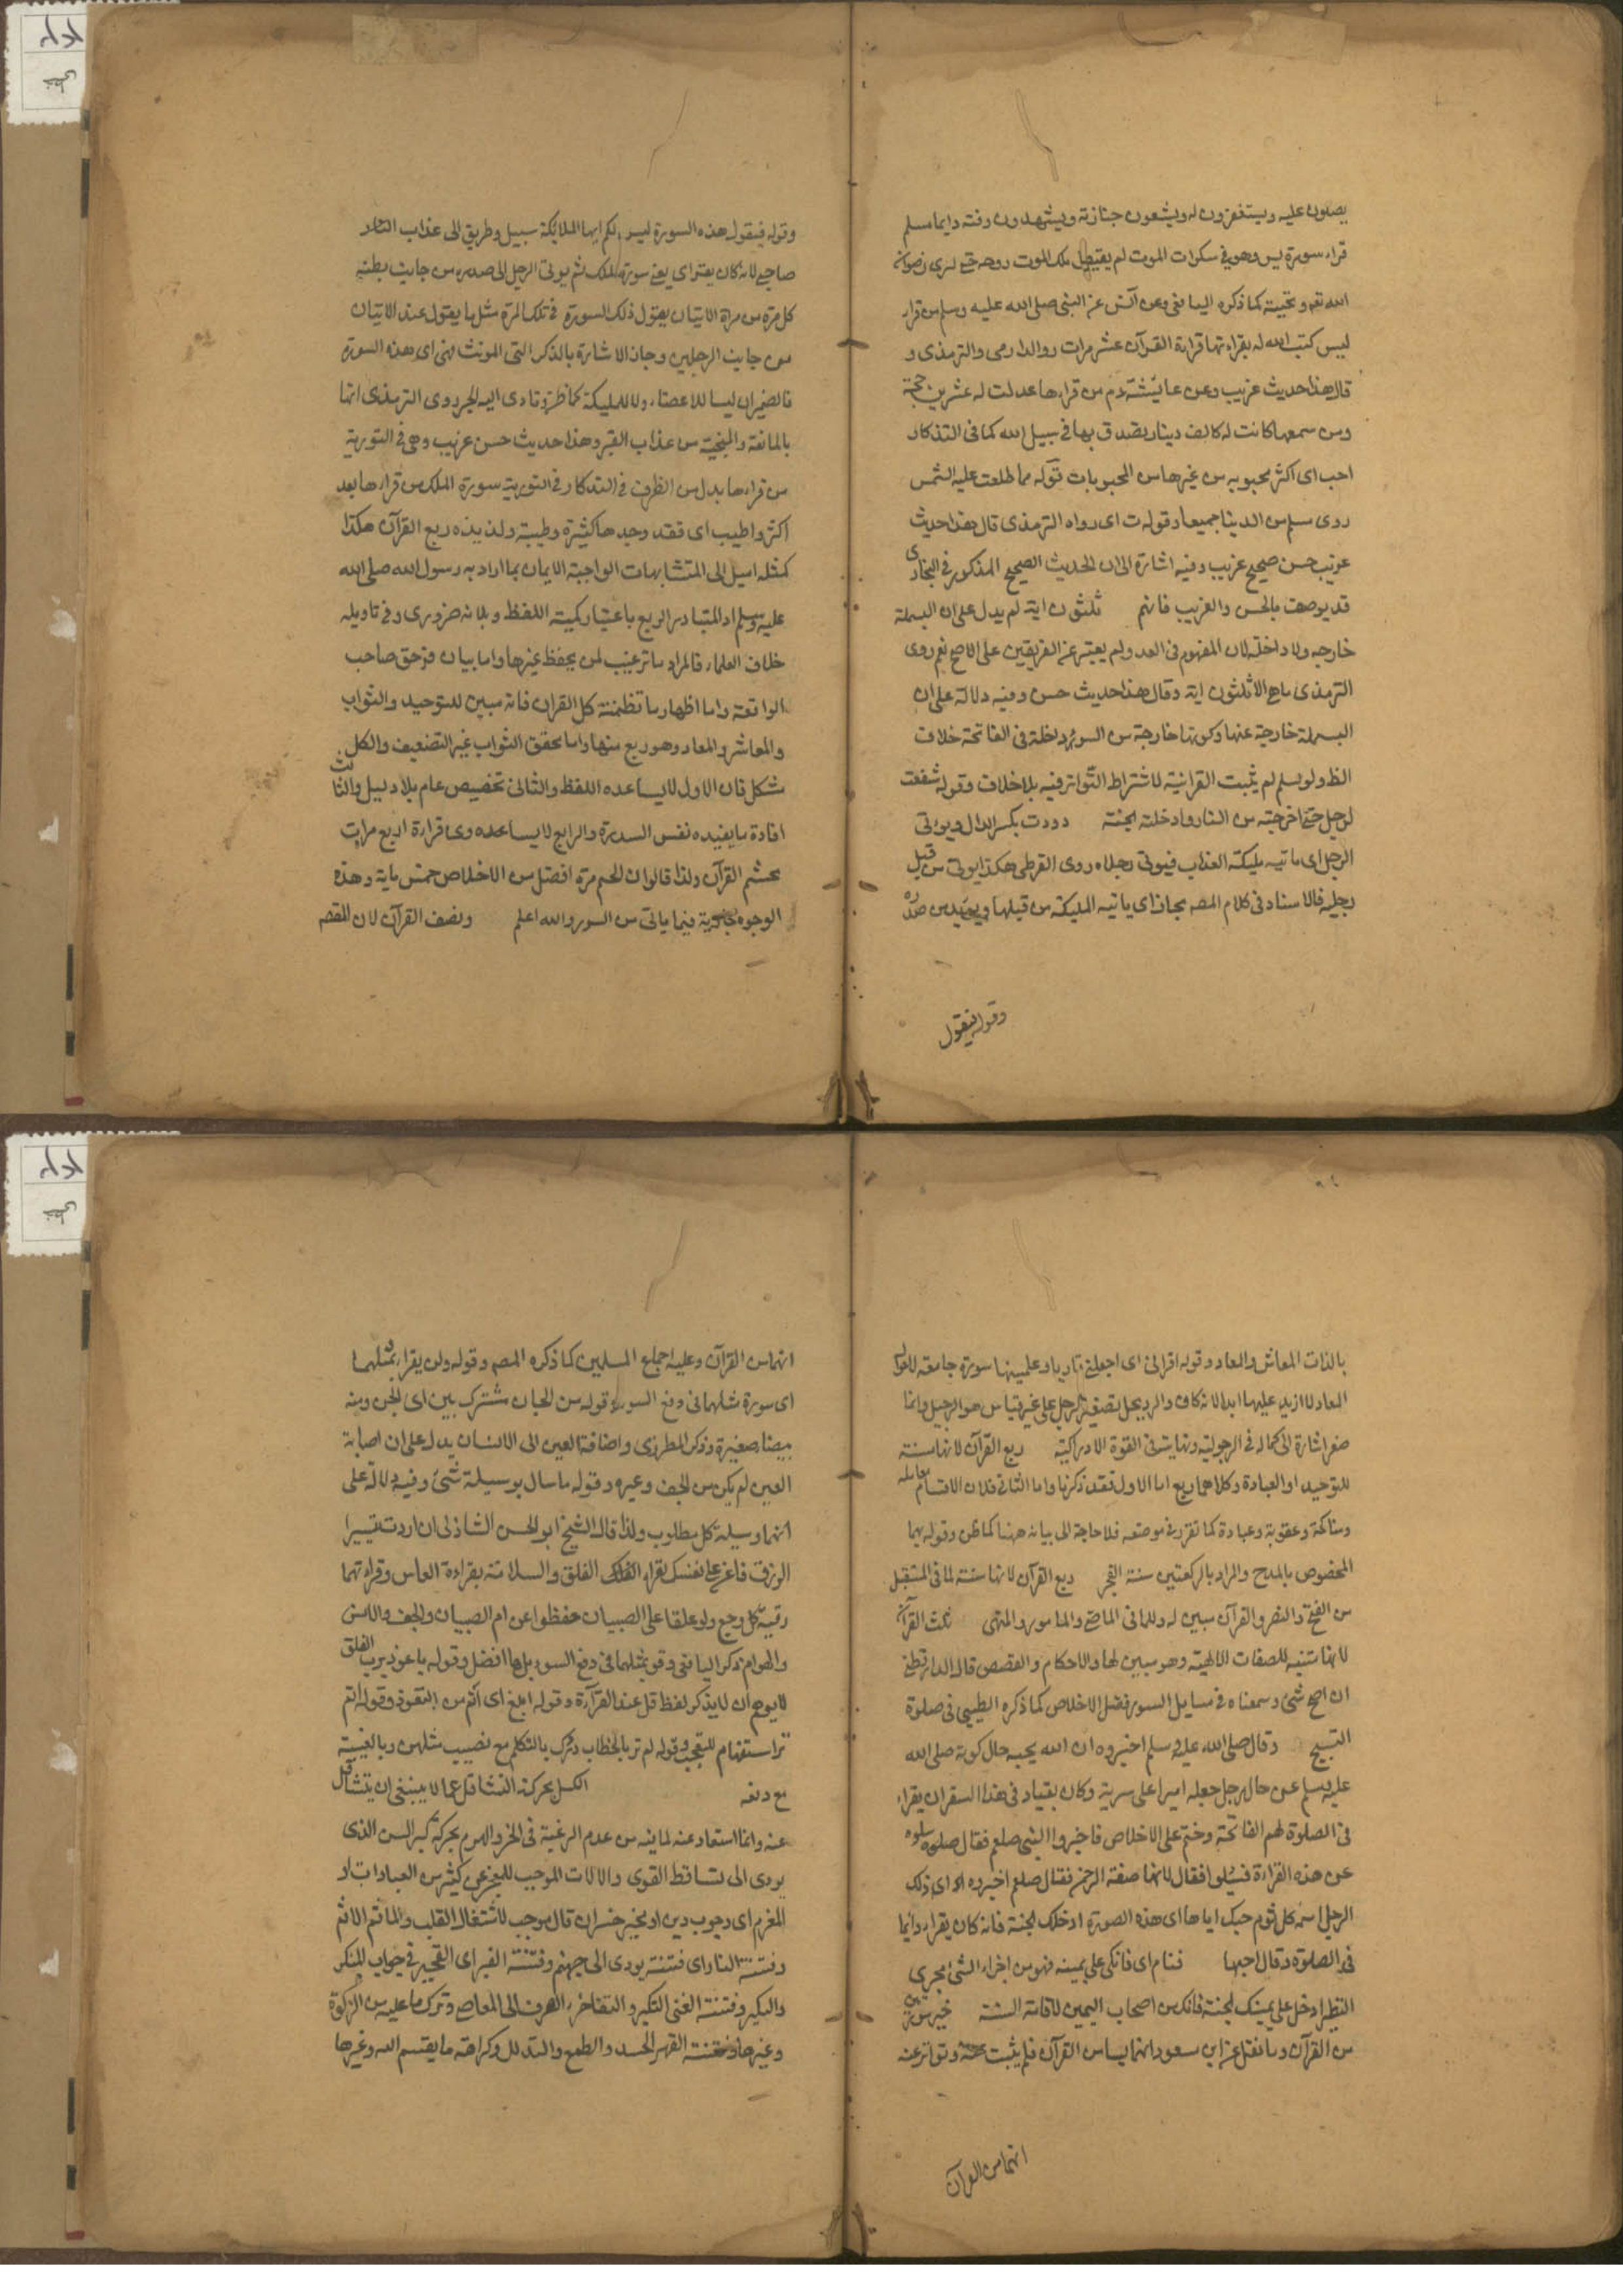 يصلون عليه ويستغفرون له ويشعون جنازته ويشهدون دفنه دايما مسلم
قراء سورة يس وهو في سكرات الموت لم يقبض ملك الموت روحه حتى يرى رضوانه
الله تعه وتحيته كما ذكره اليافعى وعن انس عن النبى صلى الله عليه وسلم من قراء
ليس كتب الله له بقراءتها قراءة القرآن عشر مرات رواه الدارمى والترمذى و
قال هذا حديث غريب وعن عايشة رم من قراءها عدلت له عشرين حجة
ومن سمعها كانت له كالف دينار يصدق بها في سبيل الله كما فى التذكار
احب اى اكثر محبوبه من غيرها من المحبوبات قوله مما طلعت عليه الشمس
روى مسلم من الدينا جميعا وقوله ت اى رواه الترمذى قال هذا حديث
غريب حسن صحيح غريب وفيه اشارة الى ان الحديث الصحيح المذكور في البخارى
قد يوصف بالحسن والغريب فافهم ثلثون اية لم يدل على ان البسملة
خارجه ولا داخلة لان المفهوم فى العدد ولم يعتبر عن الفريقين على الاصح نعم روى
الترمذى ماهى الا ثلثون اية وقال هذا حديث حسن وفيه دلالة على ان
البسملة خارجة عنها وكونها خارجة من السور داخلة فى الفاتحة خلاف
الظ ولو سلم لم يثبت القرانية لاشتراط التواتر فيه بلا خلاف وقوله شفعت
لرجل حتى اخرجته من النار وادخلته الجنة وددت بكسر الدال ويؤتى
الرجل اى ماتيه مليكة العذاب فيوتى رجلاه روى القرطبى هكذا يوتى من قبل
رجليه فالاسناد فى كلام المصه مجاز اى ياتيه المليكة من قبلها ويؤيده من صدره
وقوله فيقول
وقوله فيقول هذه السورة ليس لكم ايها الملايكة سبيل وطريق الى عذاب النار
صاحبى لانه كان يقراى يعنى سورة الملك ثم يوتى الرجل الى صدره من جانب بطنه
كل مرة من مراة الاتيان يقول ذلك السورة فى تلك المرة مثل ما يقول عند الاتيان
من جانب الرجلين وجاز الاشارة بالذكر التى المونث فهى اى هذه السورة
فالضميران ليسا للاعضاء ولا للمليكة كما ظن وتادى اليه الجر روى الترمذى انها
بالمانعة والمنجية من عذاب القبر وهذا حديث حسن غريب وهى فى التورية
من قراءها بدل من الظرف فى التذكار فى التورية سورة الملك من قراءها بعد
اكثر واطيب اى فقد وجدها كثيرة وطيبة ولذيذه ربع القرآن هكذا
كمثله اميل الى المتشابهات الواجبة الايمان بما اراد به رسول الله صلى الله
عليه وسلم اذ المتبادر الربع باعتبار كمية اللفظ وبلانه ضرورى وفى تاويله
خلاف العلماء فالمراد ما ترغيب لمن يحفظ غيرها واما بيان فى حق صاحب
الواقعة واما اظهار ما تظمنته كل القران فانه مبين للتوحيد والثواب
والمعاشر والمعاد وهو ربع منها واما تحقق الثواب غير التضعيف والكل
مشكل فان الاول لا يساعده اللفظ والثانى تخصيص عام بلا دليل والثالث
افادة ما يفيده نفس السورة والرابع لا يساعده وعا قراءة اربع مرات
ختم القرآن ولذا قالوا ان الختم مرة افضل من الاخلاص خمس ماية وهذه
الوجوه جارية فيما ياتى من السور والله اعلم ونصف القرآن لان المقصه
بالذات المعاش والمعاد وقوله اقرانى اى اجعلنى قاريا وعلمينها سورة جامعة لاحوال
المعاد لا ازيد عليها ابدا لانه كاف والرويجل تصغير الرجل على غير قياس هو الرجيل وانما
صغر اشارة الى كماله فى الرجولية ونهايته فى القوة الادراكية ربع القرآن لانها سنة
للتوحيد او العبادة وكلاهما ربع اما الاول فقد ذكرنا واما الثانى فلان الاقسام معاملة
ومناكحة وعقوبة وعبادة كما تقرر فى موضعه فلا حاجة الى بيانه ههنا كما ظن وقوله هما
المخصوص بالمدح والمراد بالركعتين سنة الفجر ربع القرآن لانها سنة لما فى المستقبل
من الفتح والنصر والقرآن مبين له وللمانى الماضى والمامور والمنهى ثلث القرآن
لانها متنيه للصفات الالهية وهو مبين لها والاحكام والقصص قال الدارقطنى
ان اصح شئ وسمعناه فى مسايل السور فضل الاخلاص كما ذكره الطيبى فى صلوة
التسبيح وقال صلى الله عليه وسلم اخبروه ان الله يحبه حال كونه صلى الله
عليه وسلم عن حال رجل جعله اميرا على سرية وكان يقتاد فى هذا السفر ان يقراء
فى الصلوة لهم الفاتحة وختم على الاخلاص فاخبروا النبى صلعم فقال صلعم سلوه
عن هذه القراءة فسئلوا فقال لانها صفة الرحمن فقال صلعم اخبروه اى ذلك
الرجل اسمه كلثوم حبك اياها اى هذه الصورة ادخلك الجنة فانه كان يقراء دايما
فى الصلوة وقال احبها فنام اى فاتكى على يمينه فهو من اجراء الشئ مجرى
النظر ادخل على يمينك الجنة فانك من اصحاب اليمين لاقامة السنة خير سورتين
من القرآن وما نقل عن ابن مسعود انهما ليسا من القرآن فلم يثبت عنه وتواتر عنه
انهما من القرآن
انهما من القرآن وعليه اجماع المسلمين كما ذكره المصه وقوله ولن يقراء بمثلهما
اى سورة مثلهما فى دفع السوء قوله من الجان مشترك بين اى الجن ومنه
بيضاء صغيرة وذكر المطرزى واضافة العين الى الانسان يدل على ان اصابة
العين لم يكن من الجن وغيره وقوله ما سال بوسيلة شئ وفيه دلالة على
انهما وسيلة كل مطلوب ولذا قال الشيخ ابو الحسن الشاذلى ان اردت تيسيرا
الرزق فاعزم على نفسك بقراءة الفلق والسلامة بقراءة الناس وقراءتهما
رقية كل وجع ولو علقا على الصبيان حفظوا عن ام الصبيان والجن والانس
والهوام ذكر اليافعى وقوله بمثلهما فى دفع السوء بل هما افضل وقوله ياعوذ برب الفلق
لايوهم ان لايذكر لفظ قل عند القراءة وقوله ابلغ اى اتم من التعوذ وقوله الم
تر استفهام للتعجب وقوله لم تر بالخطاب وترك بالتكلم مع نصيب مثلهن وبالغيبة
مع رفعه الكسل بحركة التثاقل عما لا ينبغى ان يتثاقل
عنه وانما استعاد عنه لما فيه من عدم الرغبة فى الخير والهرم بحركة كبر السن الذى
يودى الى تساقط القوى والالات الموجب للعجز عن كثير من العبادات او
المغرم اى وجوب دين او بخير خسران قال موجب لاشتغال القلب والماثم الاثم
وفتنة النار اى فتنة يودى الى جهنم وفتنة القبر اى التحير فى جواب المنكر
والنكير وفتنة الغنى التكبر والتفاخر والصرف الى المعاصى وترك ما عليه من الزكوة
وغيرها وفتنة الفقر الحسد والطمع والتذلل وكراهة ما يقتسم الله وغيرها